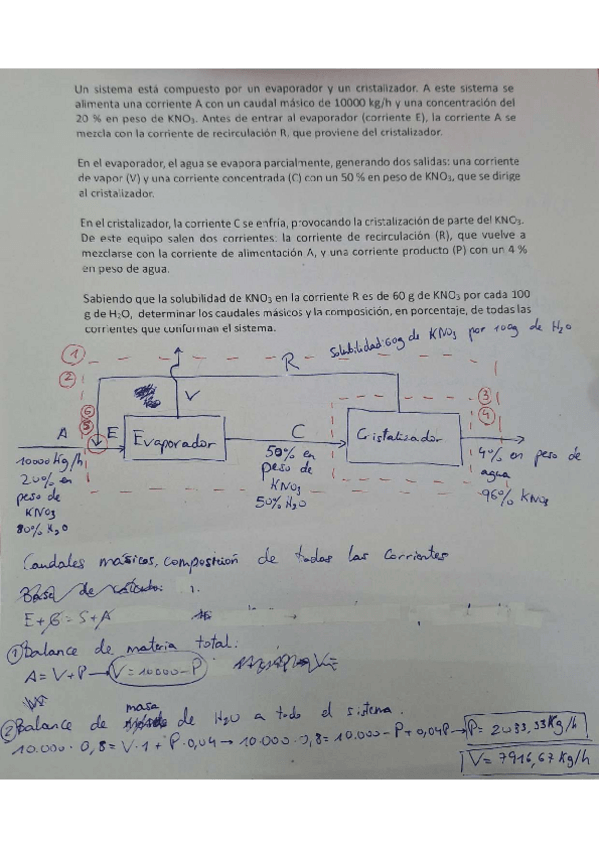 Un sistema está compuesto por un evaporador y un cristalizador. A este sistema se
alimenta una corriente A con un caudal másico de 10000 kg/h y una concentración del
20 % en peso de KNO₃. Antes de entrar al evaporador (corriente E), la corriente A se
mezcla con la corriente de recirculación R, que proviene del cristalizador.
En el evaporador, el agua se evapora parcialmente, generando dos salidas: una corriente
de vapor (V) y una corriente concentrada (C) con un 50 % en peso de KNO₃, que se dirige
al cristalizador.
En el cristalizador, la corriente C se enfría, provocando la cristalización de parte del KNO₃.
De este equipo salen dos corrientes: la corriente de recirculación (R), que vuelve a
mezclarse con la corriente de alimentación A, y una corriente producto (P) con un 4 %
en peso de agua.
Sabiendo que la solubilidad de KNO₃ en la corriente R es de 60 g de KNO₃ por cada 100
g de H₂O, determinar los caudales másicos y la composición, en porcentaje, de todas las
corrientes que conforman el sistema.
Solubilidad: 60g de KNO₃ por 100g de H₂O
1
R
2
V
3
6
4
5
A
E
Evaporador
C
Cristalizador
10000 Kg/h
20% en
peso de
KNO₃
80% H₂O
50% en
peso de
KNO₃
50% H₂O
4% en peso de
agua
96% KNO₃
Caudales másicos, composición de todas las corrientes
Base de cálculo: 1.
E+G=S+A
① Balance de materia total:
A=V+P → V=10000-P
② Balance de masa de H₂O a todo el sistema.
10.000 · 0,8 = V·1 + P·0,04 → 10.000 · 0,8 = 10.000 - P + 0,04P → P= 2083,33Kg/h
V= 7916,67 Kg/h